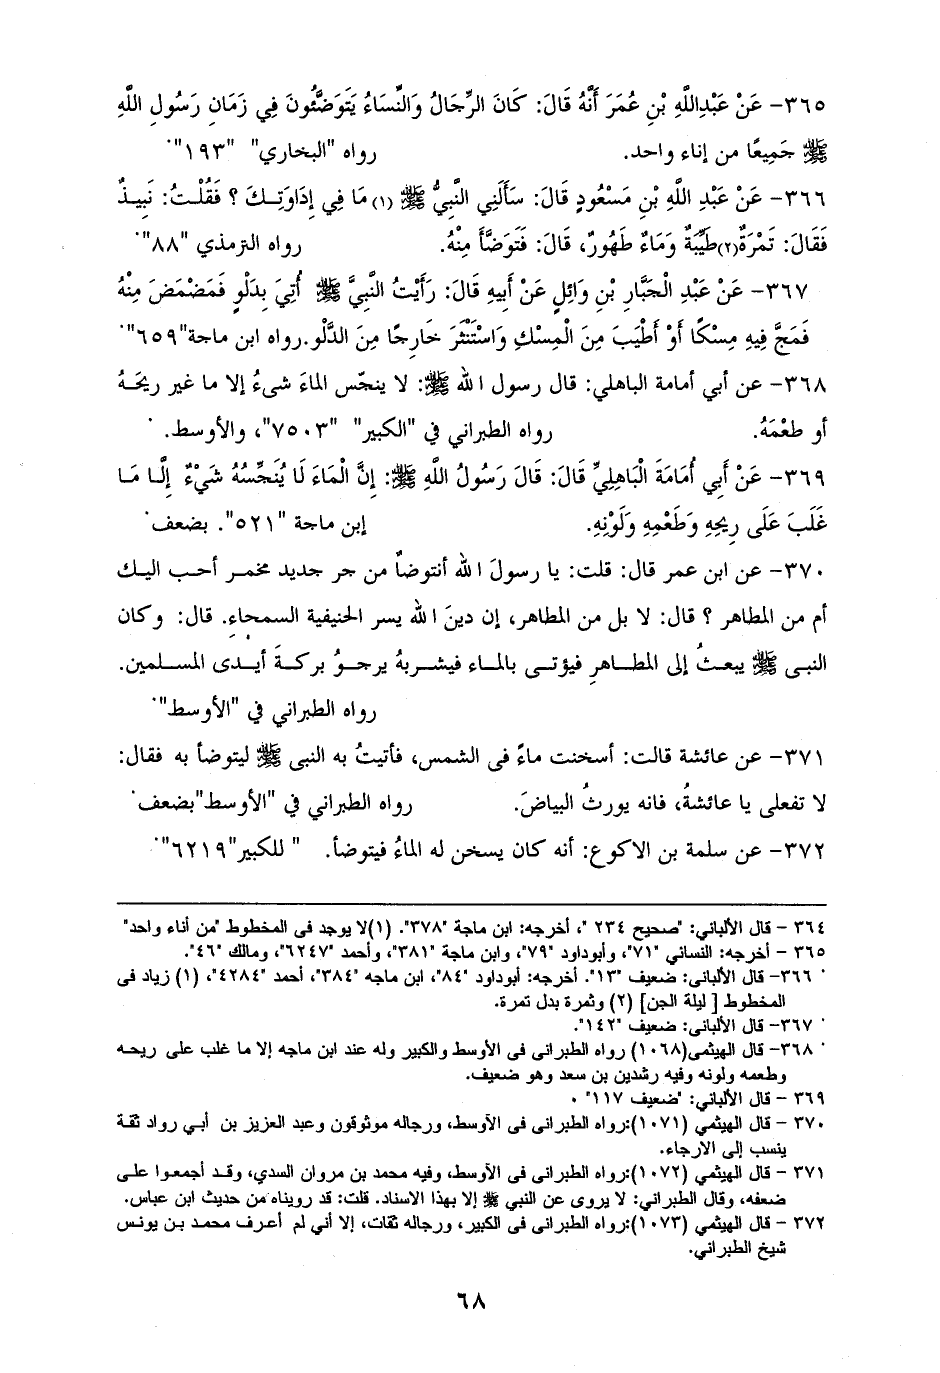 ٣٦٥- عَنْ عَبْدِاللَّهِ بْنِ عُمَرَ أَنَّهُ قَالَ: كَانَ الرِّجَالُ وَالنِّسَاءُ يَتَوَضَّئُونَ فِي زَمَانِ رَسُولِ اللَّهِ
ﷺ جَمِيعًا من إناء واحد. رواه "البخاري" "١٩٣".
٣٦٦- عَنْ عَبْدِ اللَّهِ بْنِ مَسْعُودٍ قَالَ: سَأَلَنِي النَّبِيُّ ﷺ (١) مَا فِي إِدَاوَتِكَ ؟ فَقُلْتُ: نَبِيذٌ
فَقَالَ: تَمْرَةٌ(٢)طَيِّبَةٌ وَمَاءٌ طَهُورٌ، قَالَ: فَتَوَضَّأَ مِنْهُ. رواه الترمذي "٨٨".
٣٦٧- عَنْ عَبْدِ الْجَبَّارِ بْنِ وَائِلٍ عَنْ أَبِيهِ قَالَ: رَأَيْتُ النَّبِيَّ ﷺ أُتِيَ بِدَلْوٍ فَمَضْمَضَ مِنْهُ
فَمَجَّ فِيهِ مِسْكًا أَوْ أَطْيَبَ مِنَ الْمِسْكِ وَاسْتَنْثَرَ خَارِجًا مِنَ الدَّلْوِ.رواه ابن ماجة"٦٥٩".
٣٦٨- عن أبي أمامة الباهلي: قال رسول الله ﷺ: لا ينجّس الماءَ شىءُ إلا ما غير ريحَهُ
أو طعْمَهُ. رواه الطبراني في "الكبير" "٧٥٠٣"، والأوسط.
٣٦٩- عَنْ أَبِي أُمَامَةَ الْبَاهِلِيِّ قَالَ: قَالَ رَسُولُ اللَّهِ ﷺ: إِنَّ الْمَاءَ لَا يُنَجِّسُهُ شَيْءٌ إِلَّا مَا
غَلَبَ عَلَى رِيحِهِ وَطَعْمِهِ وَلَوْنِهِ. إبن ماجة "٥٢١". بضعف
٣٧٠- عن ابن عمر قال: قلت: يا رسولَ الله أنتوضأ من جر جديد مخمر أحب اليك
أم من المطاهر ؟ قال: لا بل من المطاهر، إن دينَ الله يسر الحنيفية السمحاء. قال: وكان
النبى ﷺ يبعثُ إلى المطاهر فيؤتى بالماء فيشربهُ يرجو بركةَ أيدى المسلمين.
رواه الطبراني في "الأوسط".
٣٧١- عن عائشة قالت: أسخنت ماءً فى الشمس، فأتيتُ به النبى ﷺ ليتوضأ به فقال:
لا تفعلى يا عائشةُ، فانه يورثُ البياضَ. رواه الطبراني في "الأوسط"بضعف
٣٧٢- عن سلمة بن الاكوع: أنه كان يسخن له الماءُ فيتوضأ. " للكبير"٦٢١٩".
٣٦٤ - قال الألباني: "صحيح ٢٣٤ "، أخرجه: ابن ماجة "٣٧٨". (١)لا يوجد فى المخطوط "من أناء واحد"
٣٦٥ - أخرجه: النسائي "٧١"، وأبوداود "٧٩"، وابن ماجة "٣٨١"، وأحمد "٦٢٤٧"، ومالك "٤٦".
٣٦٦- قال الألباني: ضعيف "١٣". أخرجه: أبوداود "٨٤"، ابن ماجه "٣٨٤"، أحمد "٤٢٨٤"، (١) زياد فى
المخطوط [ ليلة الجن] (٢) وثمرة بدل تمرة.
٣٦٧- قال الألبانى: ضعيف "١٤٢".
٣٦٨- قال الهيثمى(١٠٦٨) رواه الطبرانى فى الأوسط والكبير وله عند ابن ماجه إلا ما غلب على ريحه
وطعمه ولونه وفيه رشدين بن سعد وهو ضعيف.
٣٦٩ - قال الألباني: "ضعيف ١١٧" .
٣٧٠ - قال الهيثمي (١٠٧١):رواه الطبرانى فى الآوسط، ورجاله موثوقون وعبد العزيز بن أبي رواد ثقة
ينسب إلى الارجاء.
٣٧١ - قال الهيثمي (١٠٧٢):رواه الطبرانى فى الآوسط، وفيه محمد بن مروان السدي، وقد أجمعوا على
ضعفه، وقال الطبراني: لا يروى عن النبي ﷺ إلا بهذا الاسناد. قلت: قد رويناه من حديث ابن عباس.
٣٧٢ - قال الهيثمي (١٠٧٣):رواه الطبرانى فى الكبير، ورجاله ثقات، إلا أني لم أعرف محمد بن يونس
شيخ الطبراني.
٦٨